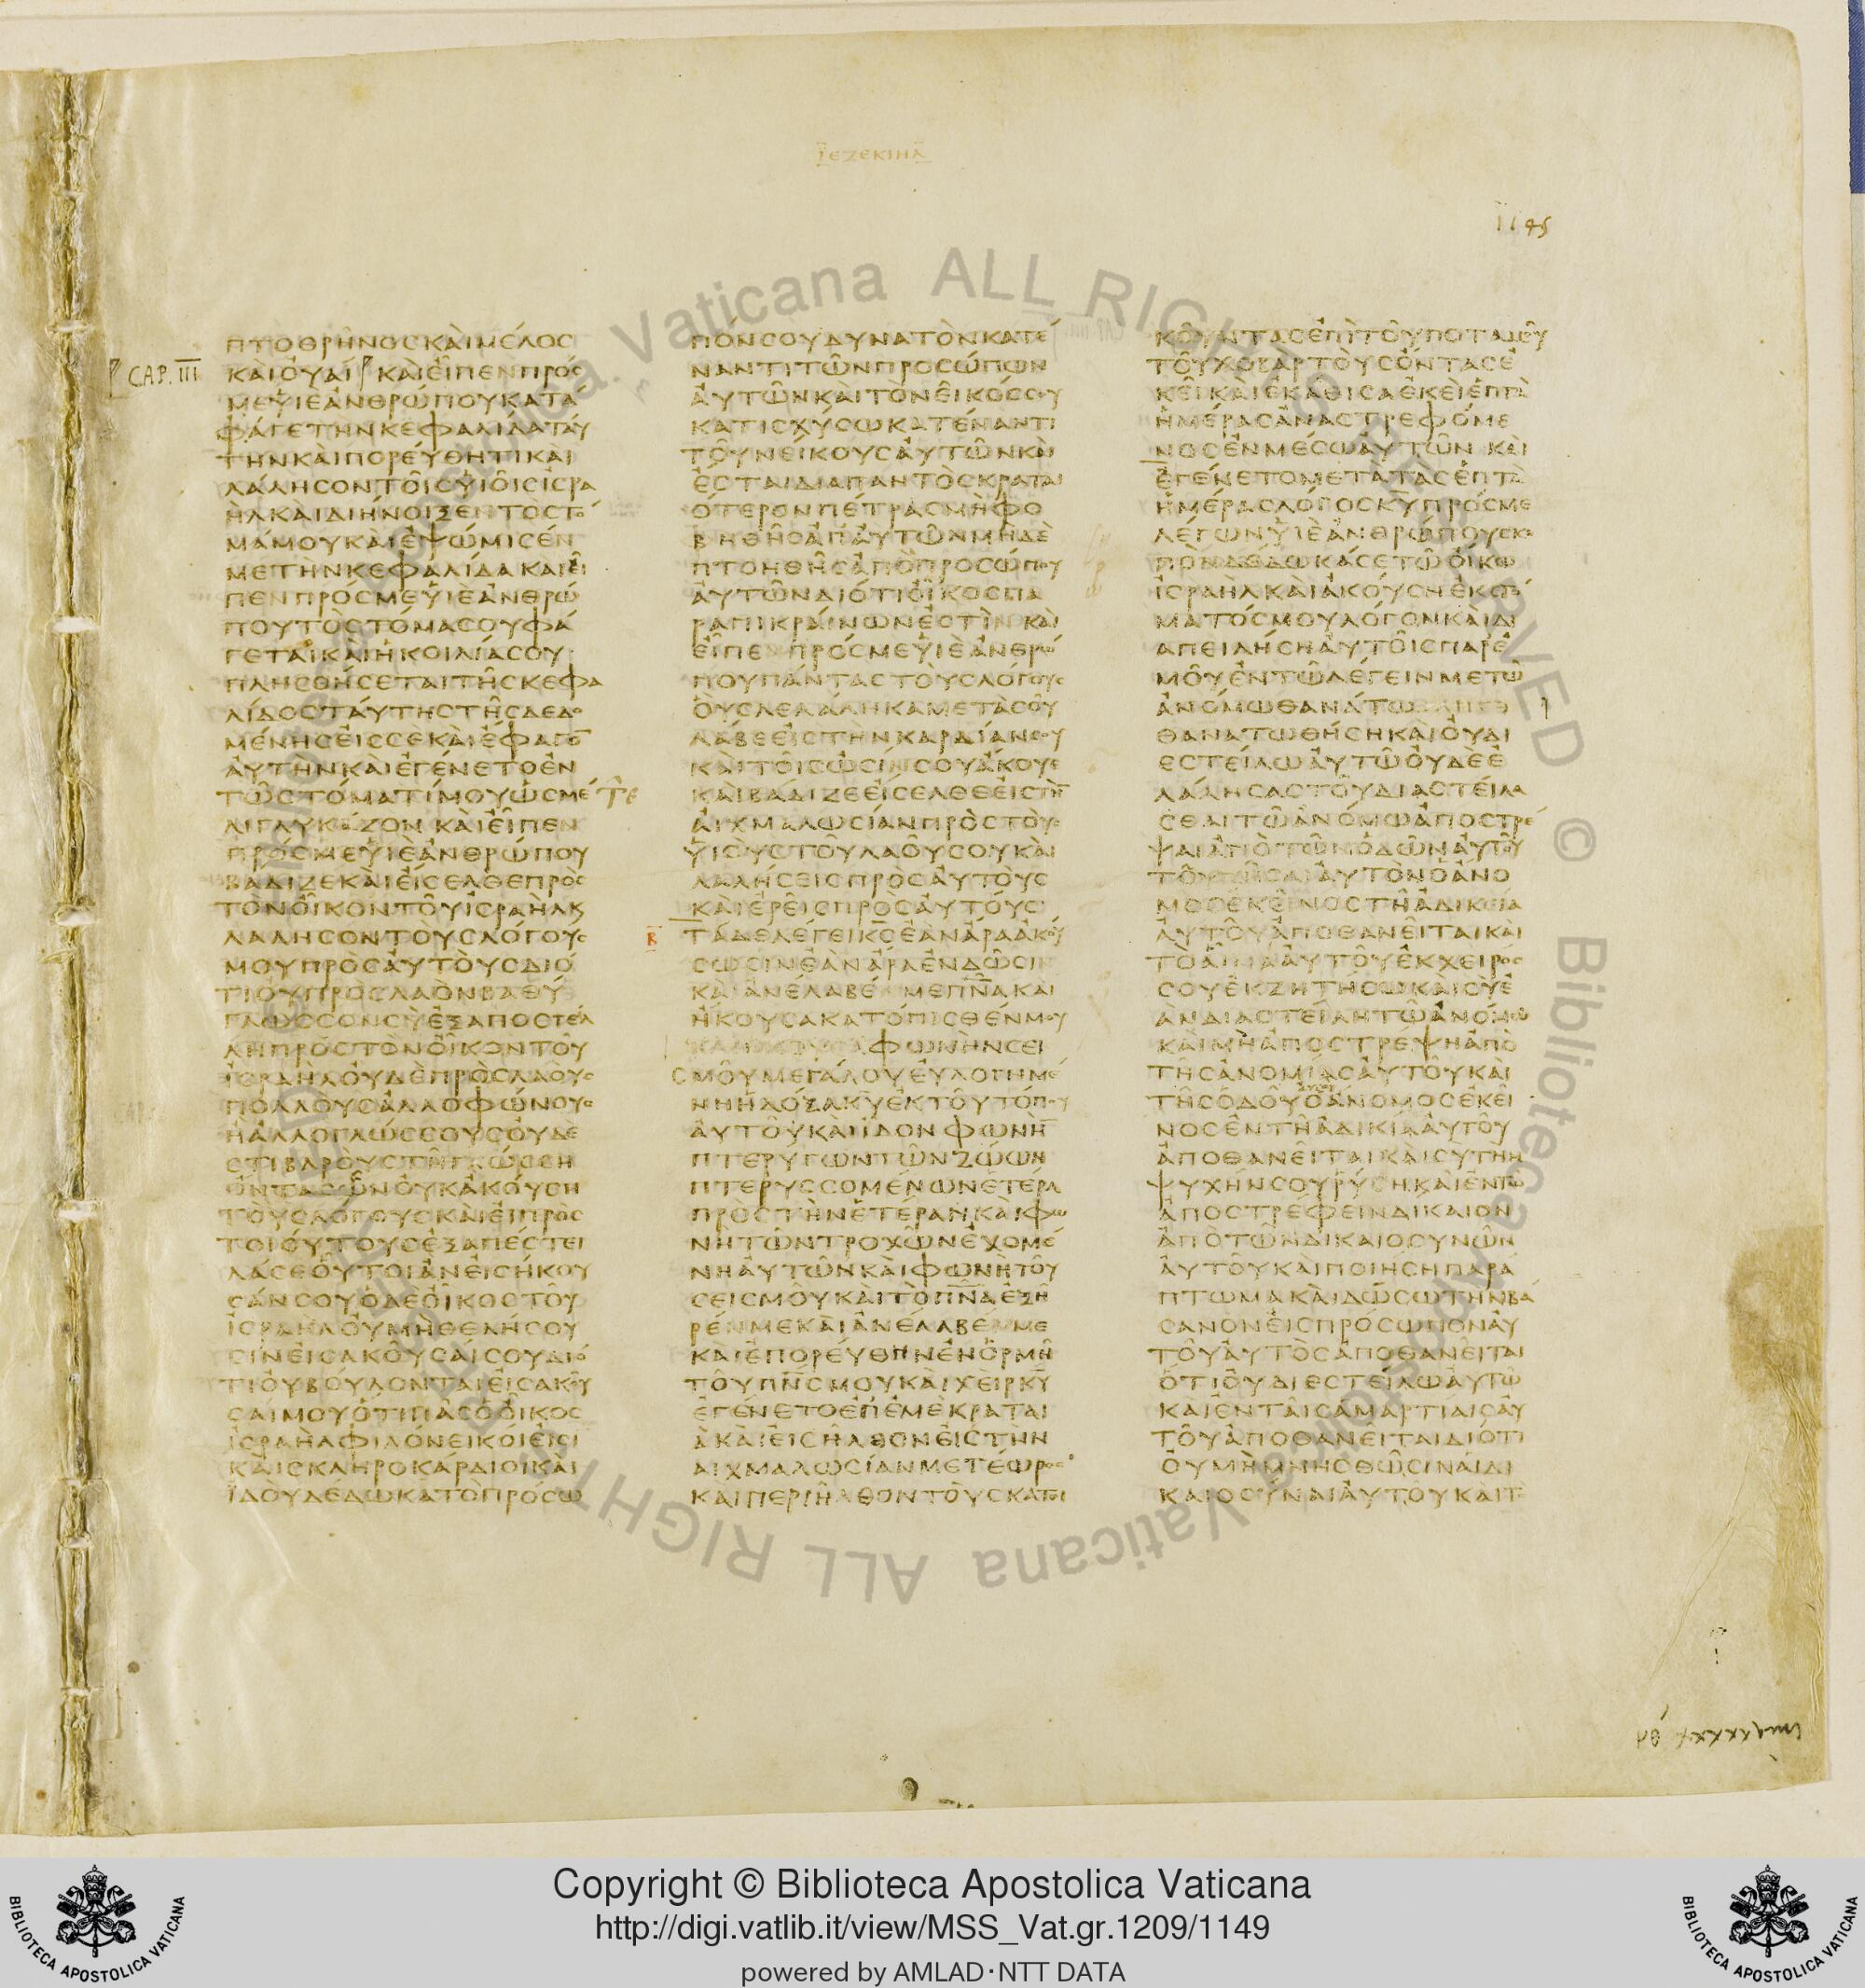 ΙΕΖΕΚΙΗΛ
1145
CAP. III
ΠΤΟΘΡΗΝΟΣΚΑΙΜΕΛΟΣ
ΚΑΙΟΥΑΙ ΚΑΙΕΙΠΕΝΠΡΟΣ
ΜΕΥΙΕΑΝΘΡΩΠΟΥΚΑΤΑ
ΦΑΓΕΤΗΝΚΕΦΑΛΙΔΑΤΑΥ
ΤΗΝΚΑΙΠΟΡΕΥΘΗΤΙΚΑΙ
ΛΑΛΗΣΟΝΤΟΙΣΥΙΟΙΣΙΣΡΑ
ΗΛΚΑΙΔΙΗΝΟΙΞΕΝΤΟΣΤΟ
ΜΑΜΟΥΚΑΙΕΨΩΜΙΣΕΝ
ΜΕΤΗΝΚΕΦΑΛΙΔΑΚΑΙΕΙ
ΠΕΝΠΡΟΣΜΕΥΙΕΑΝΘΡΩ
ΠΟΥΤΟΣΤΟΜΑΣΟΥΦΑ
ΓΕΤΑΙΚΑΙΗΚΟΙΛΙΑΣΟΥ
ΠΛΗΣΘΗΣΕΤΑΙΤΗΣΚΕΦΑ
ΛΙΔΟΣΤΑΥΤΗΣΤΗΣΔΕΔΟ
ΜΕΝΗΣΕΙΣΣΕΚΑΙΕΦΑΓΟ
ΑΥΤΗΝΚΑΙΕΓΕΝΕΤΟΕΝ
ΤΩΣΤΟΜΑΤΙΜΟΥΩΣΜΕ
ΛΙΓΛΥΚΑΖΟΝΚΑΙΕΙΠΕΝ
ΠΡΟΣΜΕΥΙΕΑΝΘΡΩΠΟΥ
ΒΑΔΙΖΕΚΑΙΕΙΣΕΛΘΕΠΡΟΣ
ΤΟΝΟΙΚΟΝΤΟΥΙΣΡΑΗΛΚ
ΛΑΛΗΣΟΝΤΟΥΣΛΟΓΟΥΣ
ΜΟΥΠΡΟΣΑΥΤΟΥΣΔΙΟ
ΤΙΟΥΠΡΟΣΛΑΟΝΒΑΘΥ
ΓΛΩΣΣΟΝΣΥΕΞΑΠΟΣΤΕΛ
ΛΗΠΡΟΣΤΟΝΟΙΚΟΝΤΟΥ
ΙΣΡΑΗΛΟΥΔΕΠΡΟΣΛΑΟΥΣ
ΠΟΛΛΟΥΣΑΛΛΟΦΩΝΟΥΣ
ΗΑΛΛΟΓΛΩΣΣΟΥΣΟΥΔΕ
ΣΤΙΒΑΡΟΥΣΤΗΓΛΩΣΣΗ
ΟΝΤΑΣΩΝΟΥΚΑΚΟΥΣΗ
ΤΟΥΣΛΟΓΟΥΣΚΑΙΕΙΠΡΟΣ
ΤΟΙΟΥΤΟΥΣΕΞΑΠΕΣΤΕΙ
ΛΑΣΕΟΥΤΟΙΑΝΕΙΣΗΚΟΥ
ΣΑΝΣΟΥΟΔΕΟΙΚΟΣΤΟΥ
ΙΣΡΑΗΛΟΥΜΗΘΕΛΗΣΟΥ
ΣΙΝΕΙΣΑΚΟΥΣΑΙΣΟΥΔΙΟ
ΤΙΟΥΒΟΥΛΟΝΤΑΙΕΙΣΑΚΟΥ
ΣΑΙΜΟΥΟΤΙΠΑΣΟΟΙΚΟΣ
ΙΣΡΑΗΛΦΙΛΟΝΕΙΚΟΙΕΙΣΙ
ΚΑΙΣΚΛΗΡΟΚΑΡΔΙΟΙΚΑΙ
ΙΔΟΥΔΕΔΩΚΑΤΟΠΡΟΣΩ
ΠΟΝΣΟΥΔΥΝΑΤΟΝΚΑΤΕ
ΝΑΝΤΙΤΩΝΠΡΟΣΩΠΩΝ
ΑΥΤΩΝΚΑΙΤΟΝΕΙΚΟΣΣΟΥ
ΚΑΤΙΣΧΥΣΩΚΑΤΕΝΑΝΤΙ
ΤΟΥΝΕΙΚΟΥΣΑΥΤΩΝΚΑΙ
ΕΣΤΑΙΔΙΑΠΑΝΤΟΣΚΡΑΤΑΙ
ΟΤΕΡΟΝΠΕΤΡΑΣΜΗΦΟ
ΒΗΘΗΣΑΠΑΥΤΩΝΜΗΔΕ
ΠΤΟΗΘΗΣΑΠΟΠΡΟΣΩΠΟΥ
ΑΥΤΩΝΔΙΟΤΙΟΙΚΟΣΠΑ
ΡΑΠΙΚΡΑΙΝΩΝΕΣΤΙΝΚΑΙ
ΕΙΠΕΝΠΡΟΣΜΕΥΙΕΑΝΘΡΩ
ΠΟΥΠΑΝΤΑΣΤΟΥΣΛΟΓΟΥΣ
ΟΥΣΛΕΛΑΛΗΚΑΜΕΤΑΣΟΥ
ΛΑΒΕΕΙΣΤΗΝΚΑΡΔΙΑΝΣΟΥ
ΚΑΙΤΟΙΣΩΣΙΝΣΟΥΑΚΟΥΕ
ΚΑΙΒΑΔΙΖΕΕΙΣΕΛΘΕΕΙΣΤΗ
ΑΙΧΜΑΛΩΣΙΑΝΠΡΟΣΤΟΥΣ
ΥΙΟΥΣΤΟΥΛΑΟΥΣΟΥΚΑΙ
ΛΑΛΗΣΕΙΣΠΡΟΣΑΥΤΟΥΣ
ΚΑΙΕΡΕΙΣΠΡΟΣΑΥΤΟΥΣ
Β ΤΑΔΕΛΕΓΕΙΚΣΕΑΝΑΡΑΑΚΟΥ
ΣΩΣΙΝΕΑΝΑΡΑΕΝΔΩΣΙ
ΚΑΙΑΝΕΛΑΒΕΝΜΕΠΝΑΚΑΙ
ΗΚΟΥΣΑΚΑΤΟΠΙΣΘΕΝΜΟΥ
ΦΩΝΗΝΣΕΙ
ΣΜΟΥΜΕΓΑΛΟΥΕΥΛΟΓΗΜΕ
ΝΗΗΔΟΞΑΚΥΕΚΤΟΥΤΟΠΟΥ
ΑΥΤΟΥΚΑΙΙΔΟΝΦΩΝΗ
ΠΤΕΡΥΓΩΝΤΩΝΖΩΩΝ
ΠΤΕΡΥΣΣΟΜΕΝΩΝΕΤΕΡΑ
ΠΡΟΣΤΗΝΕΤΕΡΑΝΚΑΙΦΩ
ΝΗΤΩΝΤΡΟΧΩΝΕΧΟΜΕ
ΝΗΑΥΤΩΝΚΑΙΦΩΝΗΤΟΥ
ΣΕΙΣΜΟΥΚΑΙΤΟΠΝΑΕΞΗ
ΡΕΝΜΕΚΑΙΑΝΕΛΑΒΕΝΜΕ
ΚΑΙΕΠΟΡΕΥΘΗΝΕΝΟΡΜΗ
ΤΟΥΠΝΣΜΟΥΚΑΙΧΕΙΡΚΥ
ΕΓΕΝΕΤΟΕΠΕΜΕΚΡΑΤΑΙ
ΑΚΑΙΕΙΣΗΛΘΟΝΕΙΣΤΗΝ
ΑΙΧΜΑΛΩΣΙΑΝΜΕΤΕΩΡΟΣ
ΚΑΙΠΕΡΙΗΛΘΟΝΤΟΥΣΚΑΤΟΙ
ΚΟΥΝΤΑΣΕΠΙΤΟΥΠΟΤΑΜΟΥ
ΤΟΥΧΟΒΑΡΤΟΥΣΟΝΤΑΣΕ
ΚΕΙΚΑΙΕΚΑΘΙΣΑΕΚΕΙΕΠΤΑ
ΗΜΕΡΑΣΑΝΑΣΤΡΕΦΟΜΕ
ΝΟΣΕΝΜΕΣΩΑΥΤΩΝΚΑΙ
ΕΓΕΝΕΤΟΜΕΤΑΤΑΣΕΠΤΑ
ΗΜΕΡΑΣΛΟΓΟΣΚΥΠΡΟΣΜΕ
ΛΕΓΩΝΥΙΕΑΝΘΡΩΠΟΥΣΚΟ
ΠΟΝΔΕΔΩΚΑΣΕΤΩΟΙΚΩ
ΙΣΡΑΗΛΚΑΙΑΚΟΥΣΗΕΚΣΤΟ
ΜΑΤΟΣΜΟΥΛΟΓΟΝΚΑΙΔΙ
ΑΠΕΙΛΗΣΗΑΥΤΟΙΣΠΑΡΕ
ΜΟΥΕΝΤΩΛΕΓΕΙΝΜΕΤΩ
ΑΝΟΜΩΘΑΝΑΤΩ
ΘΑΝΑΤΩΘΗΣΗΚΑΙΟΥΔΙ
ΕΣΤΕΙΛΩΑΥΤΩΟΥΔΕΕ
ΛΑΛΗΣΑΣΤΟΥΔΙΑΣΤΕΙΛΑ
ΣΘΑΙΤΩΑΝΟΜΩΑΠΟΣΤΡΕ
ΨΑΙΑΠΟΤΩΝΟΔΩΝΑΥΤΟΥ
ΤΟΥΖΗΣΑΙΑΥΤΟΝΟΑΝΟ
ΜΟΣΕΚΕΙΝΟΣΤΗΑΔΙΚΕΙΑ
ΑΥΤΟΥΑΠΟΘΑΝΕΙΤΑΙΚΑΙ
ΤΟΑΙΜΑΑΥΤΟΥΕΚΧΕΙΡΟΣ
ΣΟΥΕΚΖΗΤΗΣΩΚΑΙΣΥΕ
ΑΝΔΙΑΣΤΕΙΛΗΤΩΑΝΟΜΩ
ΚΑΙΜΗΑΠΟΣΤΡΕΨΗΑΠΟ
ΤΗΣΑΝΟΜΙΑΣΑΥΤΟΥΚΑΙ
ΤΗΣΟΔΟΥΟΑΝΟΜΟΣΕΚΕΙ
ΝΟΣΕΝΤΗΑΔΙΚΙΑΑΥΤΟΥ
ΑΠΟΘΑΝΕΙΤΑΙΚΑΙΣΥΤΗΝ
ΨΥΧΗΝΣΟΥΡΥΣΗΚΑΙΕΝΤΩ
ΑΠΟΣΤΡΕΦΕΙΝΔΙΚΑΙΟΝ
ΑΠΟΤΩΝΔΙΚΑΙΟΣΥΝΩΝ
ΑΥΤΟΥΚΑΙΠΟΙΗΣΗΠΑΡΑ
ΠΤΩΜΑΚΑΙΔΩΣΩΤΗΝΒΑ
ΣΑΝΟΝΕΙΣΠΡΟΣΩΠΟΝΑΥ
ΤΟΥΑΥΤΟΣΑΠΟΘΑΝΕΙΤΑΙ
ΟΤΙΟΥΔΙΕΣΤΕΙΛΩΑΥΤΩ
ΚΑΙΕΝΤΑΙΣΑΜΑΡΤΙΑΙΣΑΥ
ΤΟΥΑΠΟΘΑΝΕΙΤΑΙΔΙΟΤΙ
ΟΥΜΗΜΝΗΣΘΩΣΙΝΑΙΔΙ
ΚΑΙΟΣΥΝΑΙΑΥΤΟΥΚΑΙΤ
Copyright © Biblioteca Apostolica Vaticana
http://digi.vatlib.it/view/MSS_Vat.gr.1209/1149
powered by AMLAD·NTT DATA
BIBLIOTECA APOSTOLICA VATICANA
BIBLIOTECA APOSTOLICA VATICANA